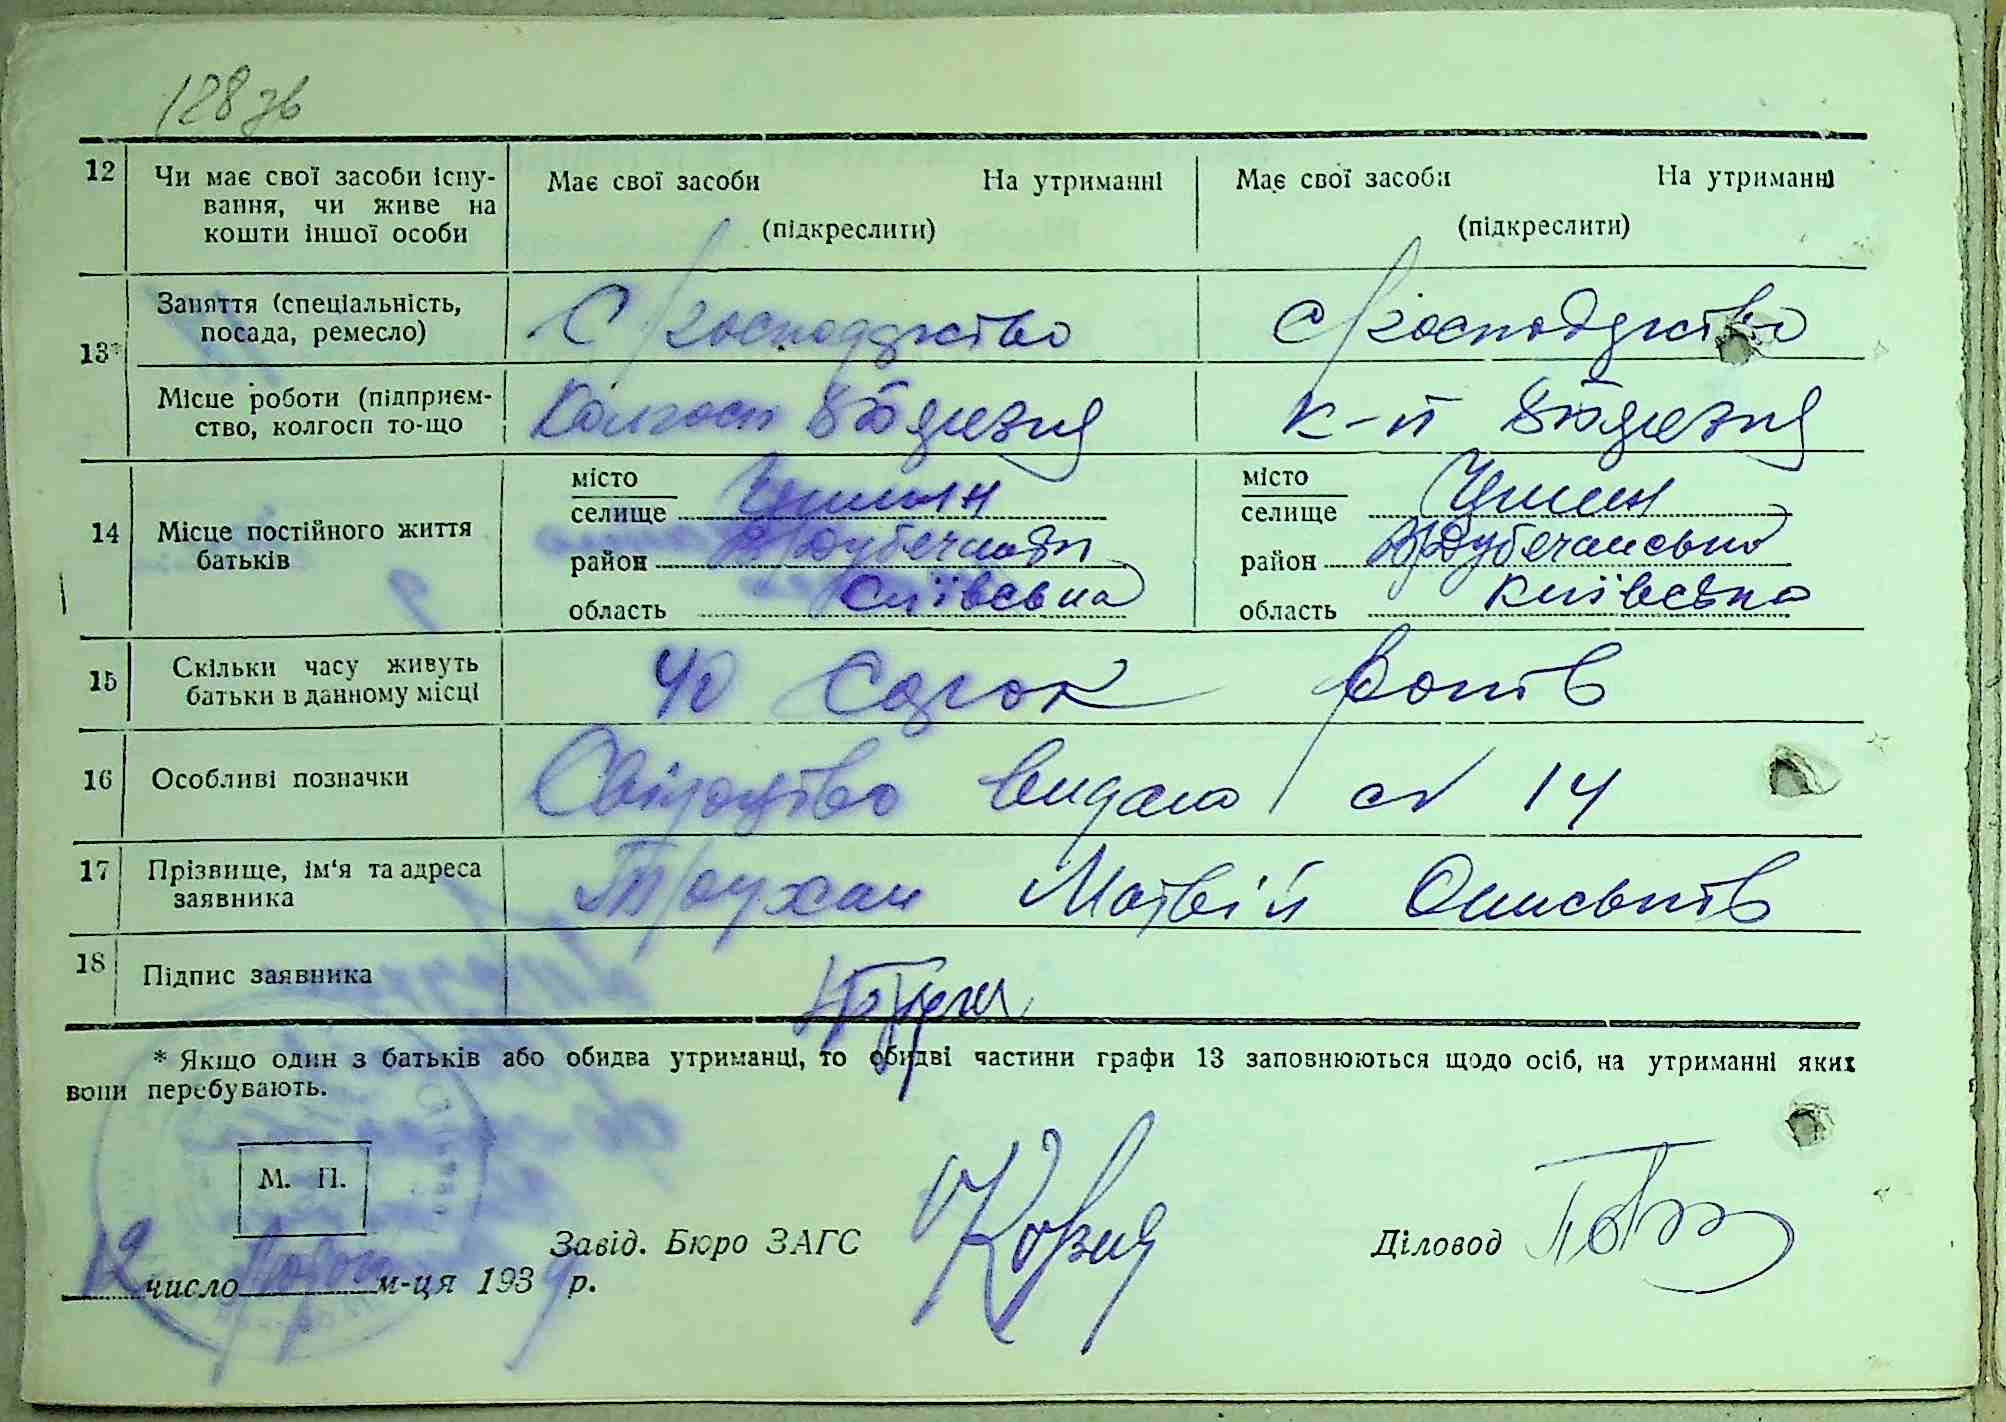 128 зв
12 Чи має свої засоби існу- Має свої засоби На утриманні Має свої засоби На утриманні
вання, чи живе на
кошти іншої особи (підкреслити) (підкреслити)
13* Заняття (спеціальність,
посада, ремесло) С/господарство С/господарство
Місце роботи (підприєм-
ство, колгосп то-що Колгосп к-п
14 Місце постійного життя батьків
місто
селище
район
область Київська
місто
селище
район В/Дубечанська
область Київська
15 Скільки часу живуть
батьки в данному місці 40 Сорок років
16 Особливі позначки Свідоцтво видано 14
17 Прізвище, ім'я та адреса
заявника Трухан Матвій
18 Підпис заявника
* Якщо один з батьків або обидва утриманці, то обидві частини графи 13 заповнюються щодо осіб, на утриманні яких
вони перебувають.
М. П.
Завід. Бюро ЗАГС Діловод
12 число м-ця 1939 р.